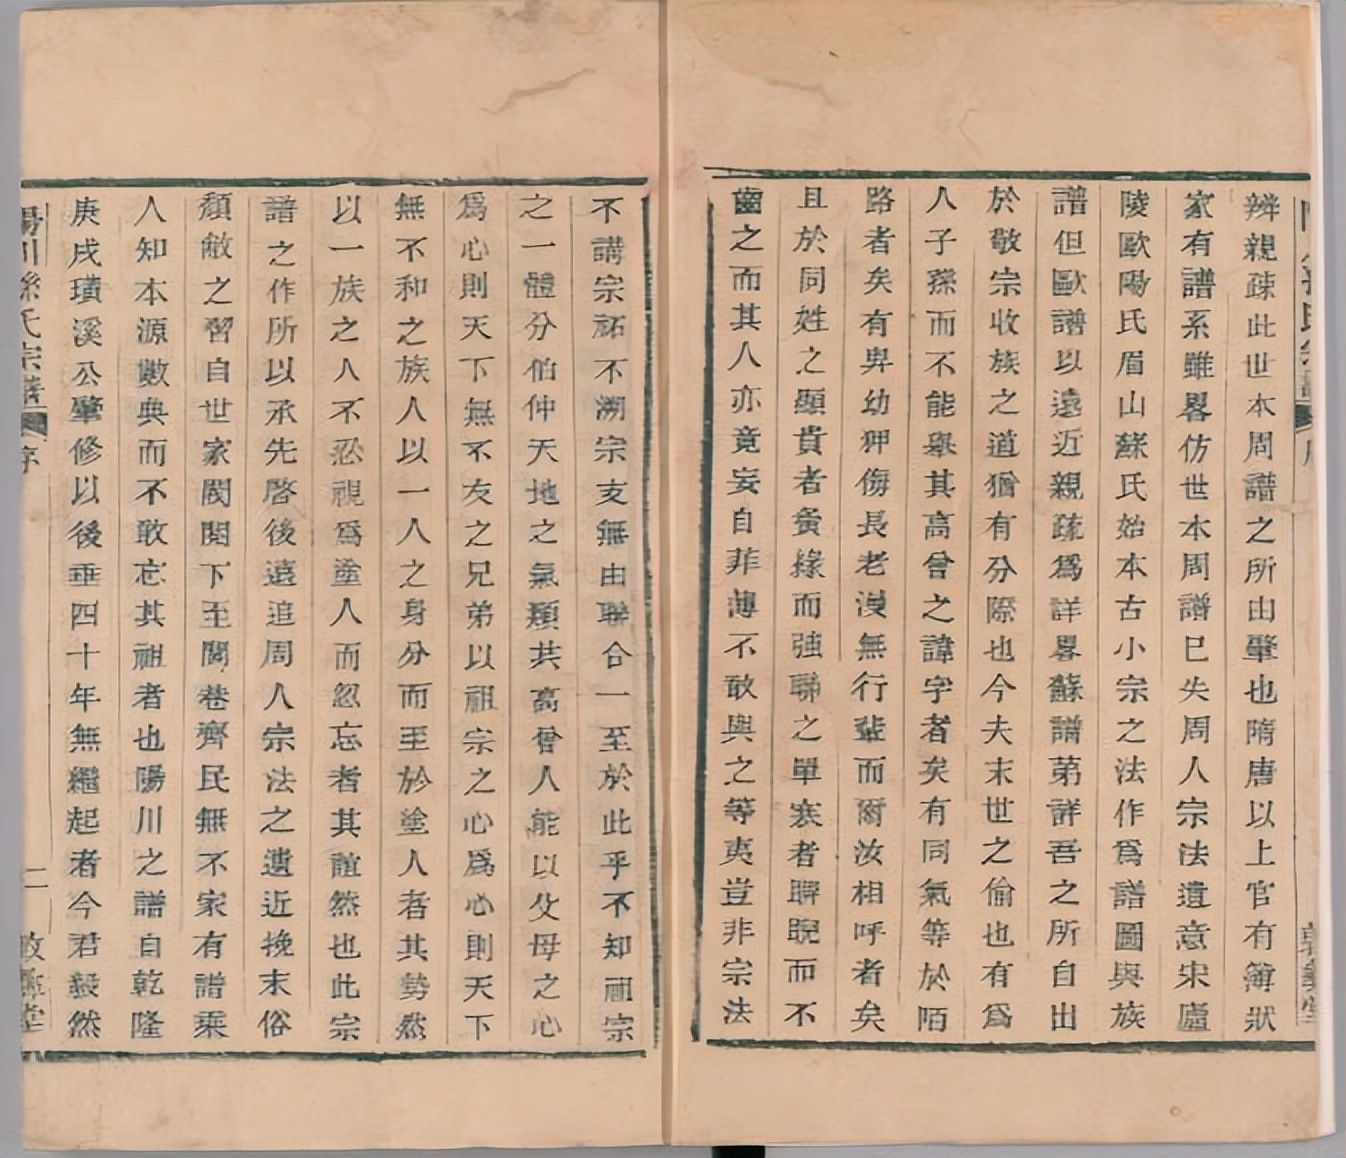 辨親疎此世本周譜之所由肇也隋唐以上官有簿狀
家有譜系雖畧仿世本周譜巳失周人宗法遺意宋廬
陵歐陽氏眉山蘇氏始本古小宗之法作爲譜圖與族
譜但歐譜以遠近親疏爲詳畧蘇譜第詳吾之所自出
於敬宗收族之道猶有分際也今夫末世之偷也有爲
人子孫而不能舉其高曾之諱字者矣有同氣等於陌
路者矣有卑幼狎侮長老漫無行輩而爾汝相呼者矣
且於同姓之顯貴者夤緣而強聯之單寒者睥睨而不
齒之而其人亦竟妄自菲薄不敢與之等夷豈非宗法
不講宗祏不溯宗支無由聯合一至於此乎不知祖宗
之一體分伯仲天地之氣類共高曾人能以父母之心
爲心則天下無不友之兄弟以祖宗之心爲心則天下
無不和之族人以一人之身分而至於塗人者其勢然
以一族之人不忍視爲塗人而忽忘者其誼然也此宗
譜之作所以承先啓後遠追周人宗法之遺近挽末俗
頹敝之習自世家閥閱下至閭巷齊民無不家有譜乘
人知本源數典而不敢忘其祖者也陽川之譜自乾隆
庚戌璜溪公肇修以後垂四十年無繼起者今君毅然
陽川孫氏宗譜
序
二